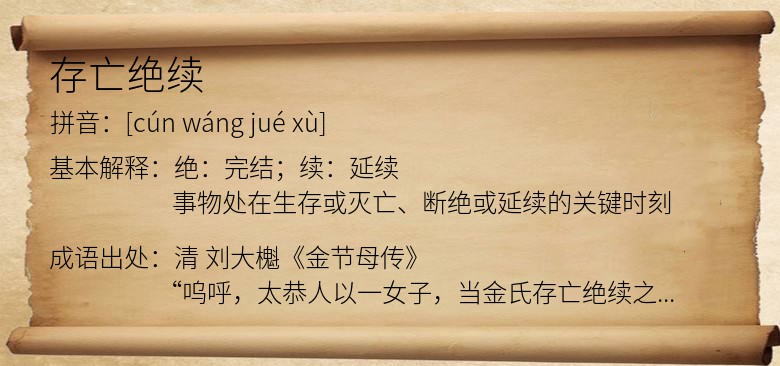 存亡绝续
拼音：[cún wáng jué xù]
基本解释：绝：完结；续：延续
事物处在生存或灭亡、断绝或延续的关键时刻
成语出处：清 刘大櫆《金节母传》
“呜呼，太恭人以一女子，当金氏存亡绝续之...